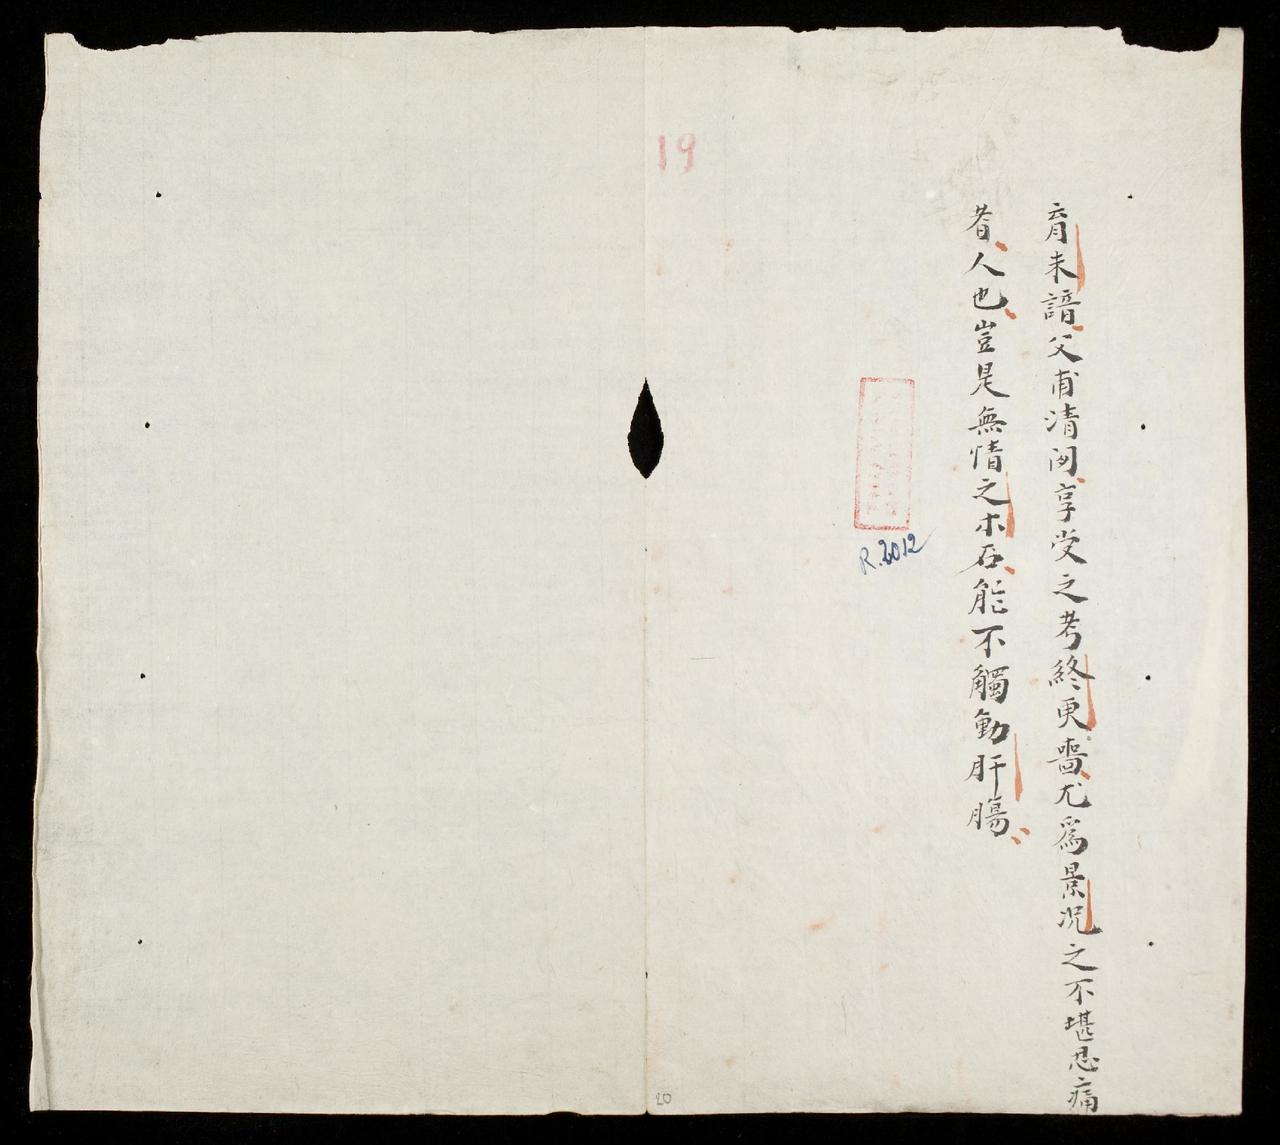 育未諳父甫清闵享受之考終更嗇尤為景况之不堪忍痛
者人也豈是無情之木石能不觸動肝腸
19
R.2012
20